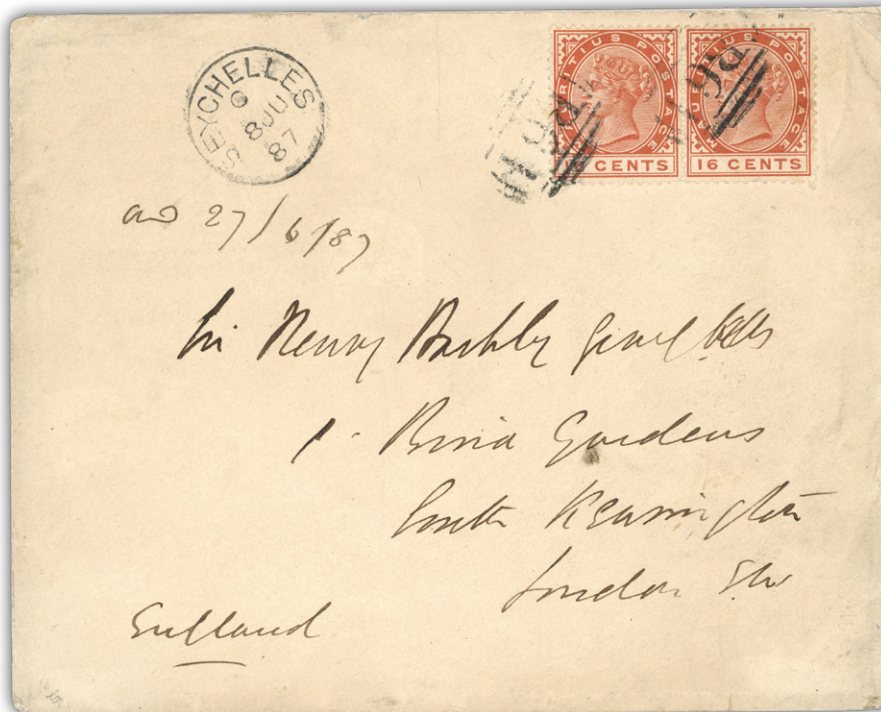 SEYCHELLES
G
8 JU
87
MAURITIUS POSTAGE
16 CENTS
MAURITIUS POSTAGE
16 CENTS
B64
B64
27/6/87
Sir Henry Barkly
1. Bina Gardens
South Kensington
London SW
England